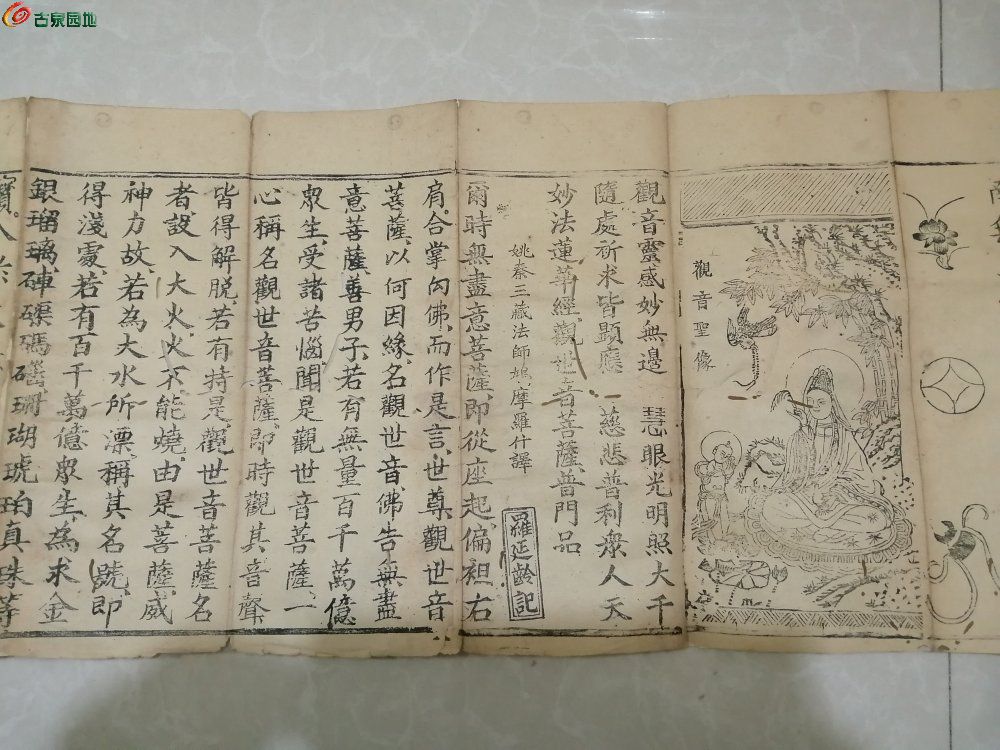 古泉园地
觀音聖像
觀音靈感妙無邊　慧眼光明照大千
隨處祈求皆顯應　慈悲普利衆人天
妙法蓮華經觀世音菩薩普門品
姚秦三藏法師鳩摩羅什譯
羅延齡記
爾時無盡意菩薩、即從座起、偏袒右
肩、合掌向佛、而作是言、世尊、觀世音
菩薩、以何因緣、名觀世音、佛告無盡
意菩薩、善男子、若有無量百千萬億
眾生、受諸苦惱、聞是觀世音菩薩、一
心稱名、觀世音菩薩、即時觀其音聲
皆得解脫、若有持是、觀世音菩薩名
者、設入大火、火不能燒、由是菩薩、威
神力故、若為大水所漂、稱其名號、即
得淺處、若有百千萬億眾生、為求金
銀、瑠璃、硨磲、碼碯、珊瑚、琥珀、真珠等
寶、入